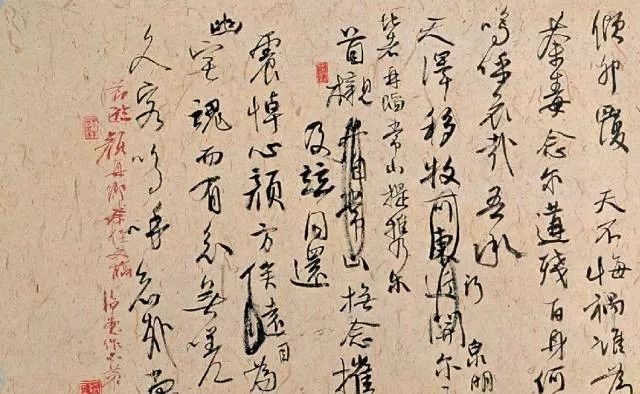 傾卵覆 天不悔禍誰為
荼毒念尔遘殘百身何
嗚呼哀哉吾承
天澤移牧河東近
泉明
比者再陷常山攜尔
首櫬 常山撫念摧
及兹同還
震悼心顏方俟遠日
幽宅魂而有知無嗟
久客嗚呼哀哉尚
節臨顏真卿祭侄文稿